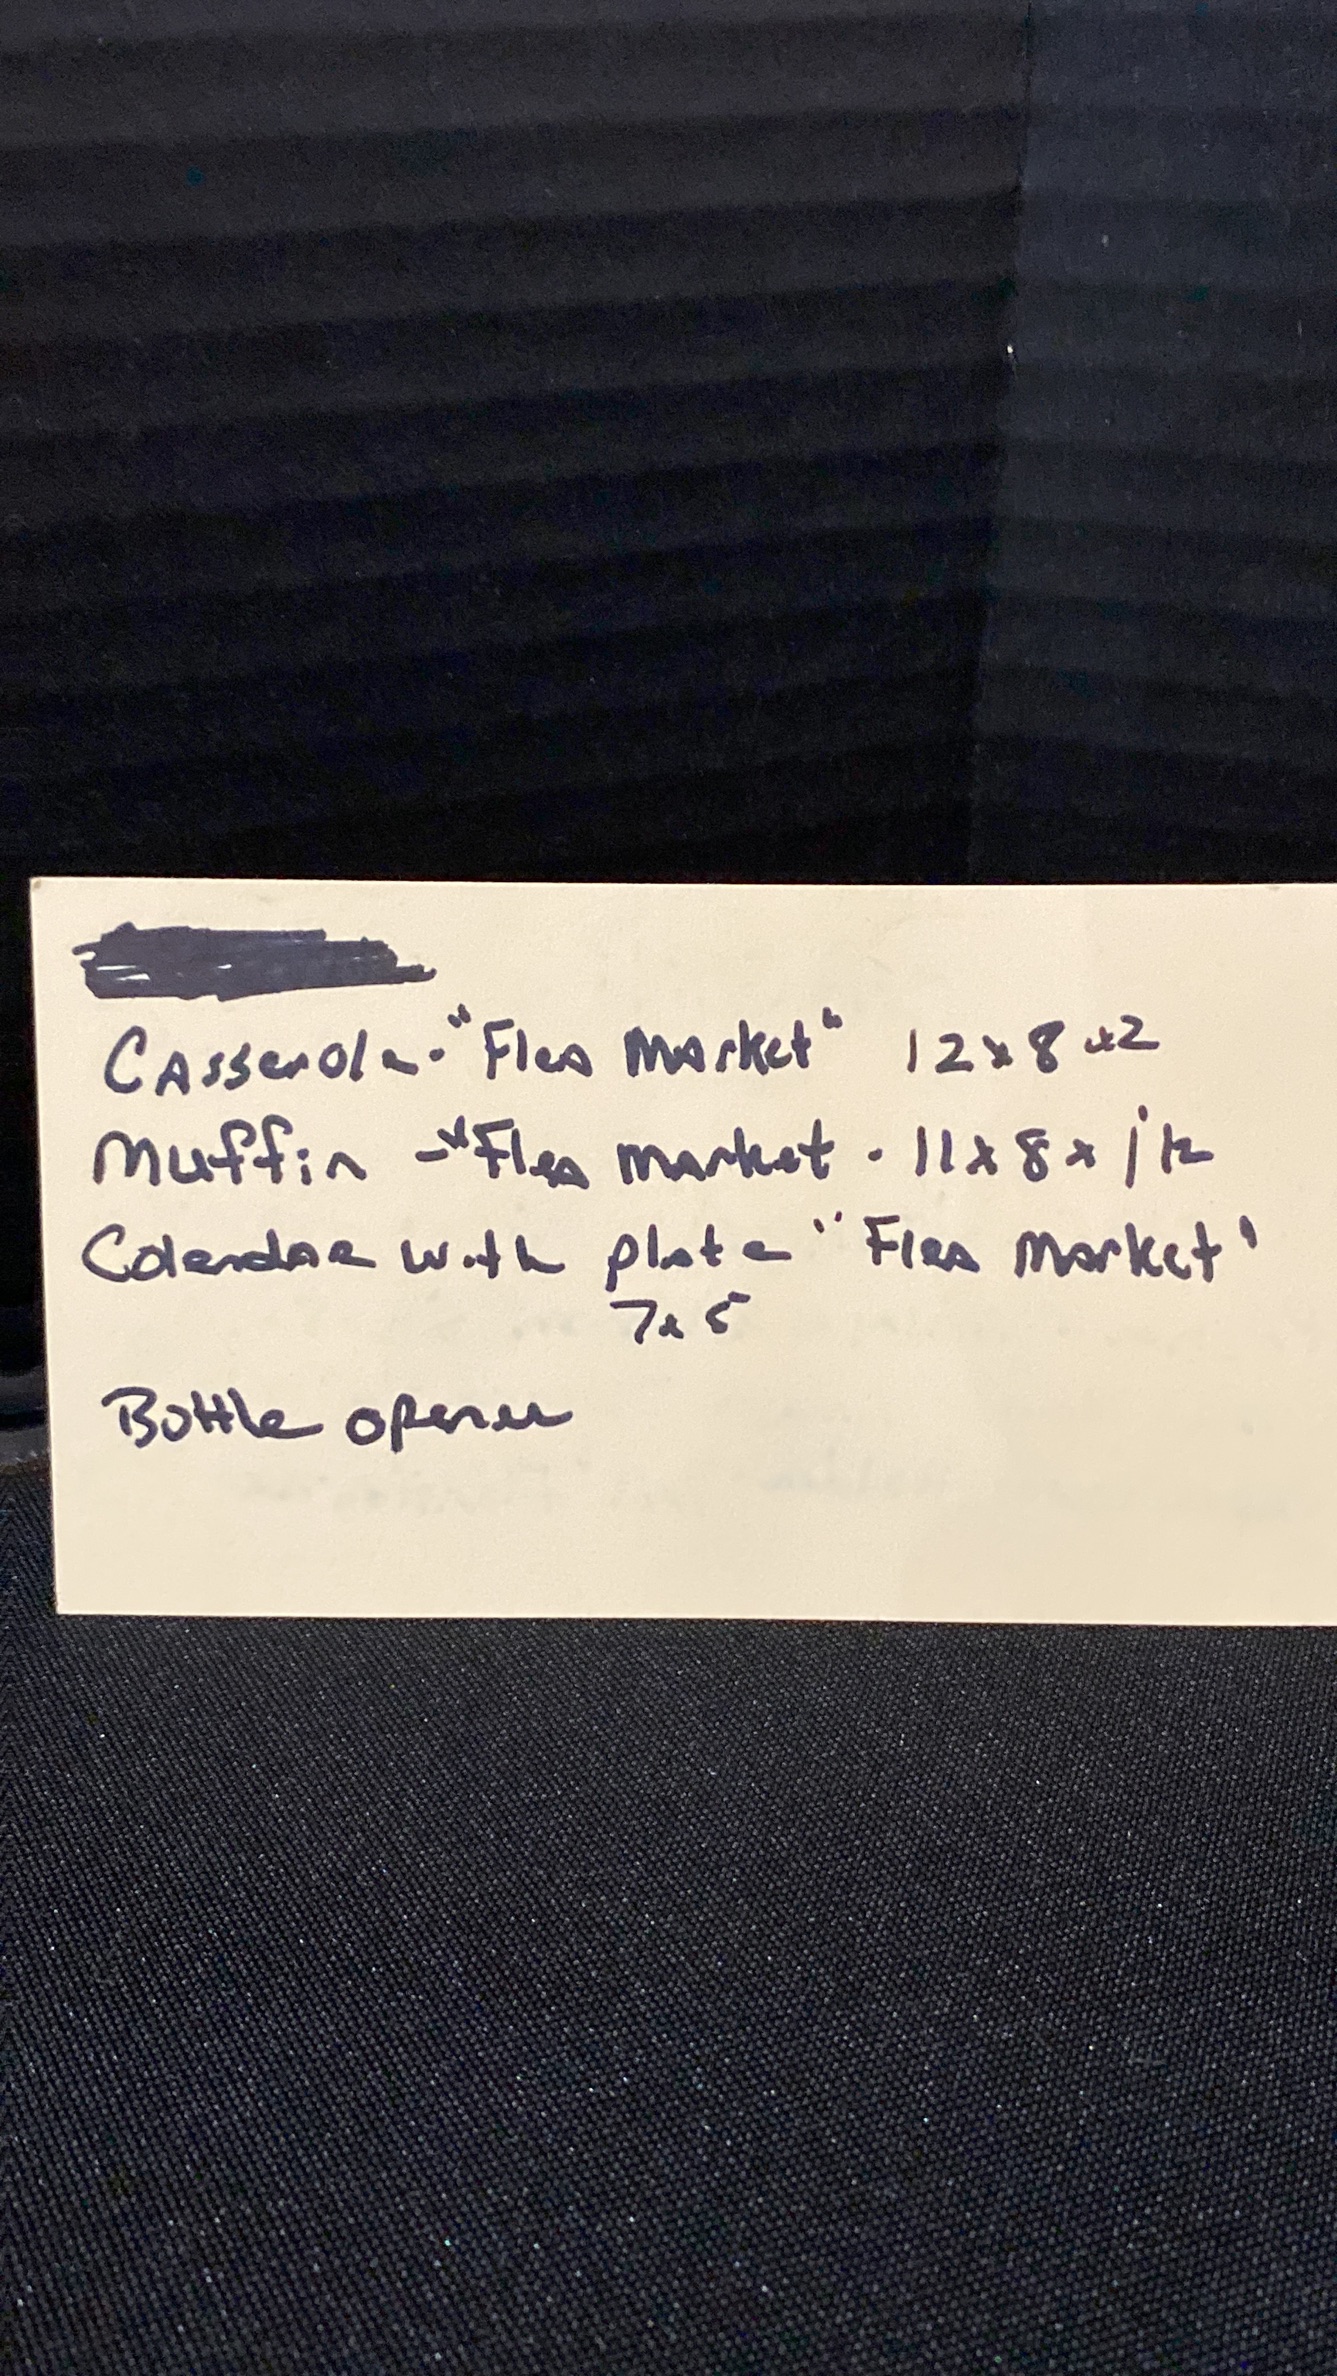 Casserole - "Flea Market" 12x8x2
Muffin - "Flea market - 11x8x
Calendar with plate "Flea Market'
7x5
Bottle opener